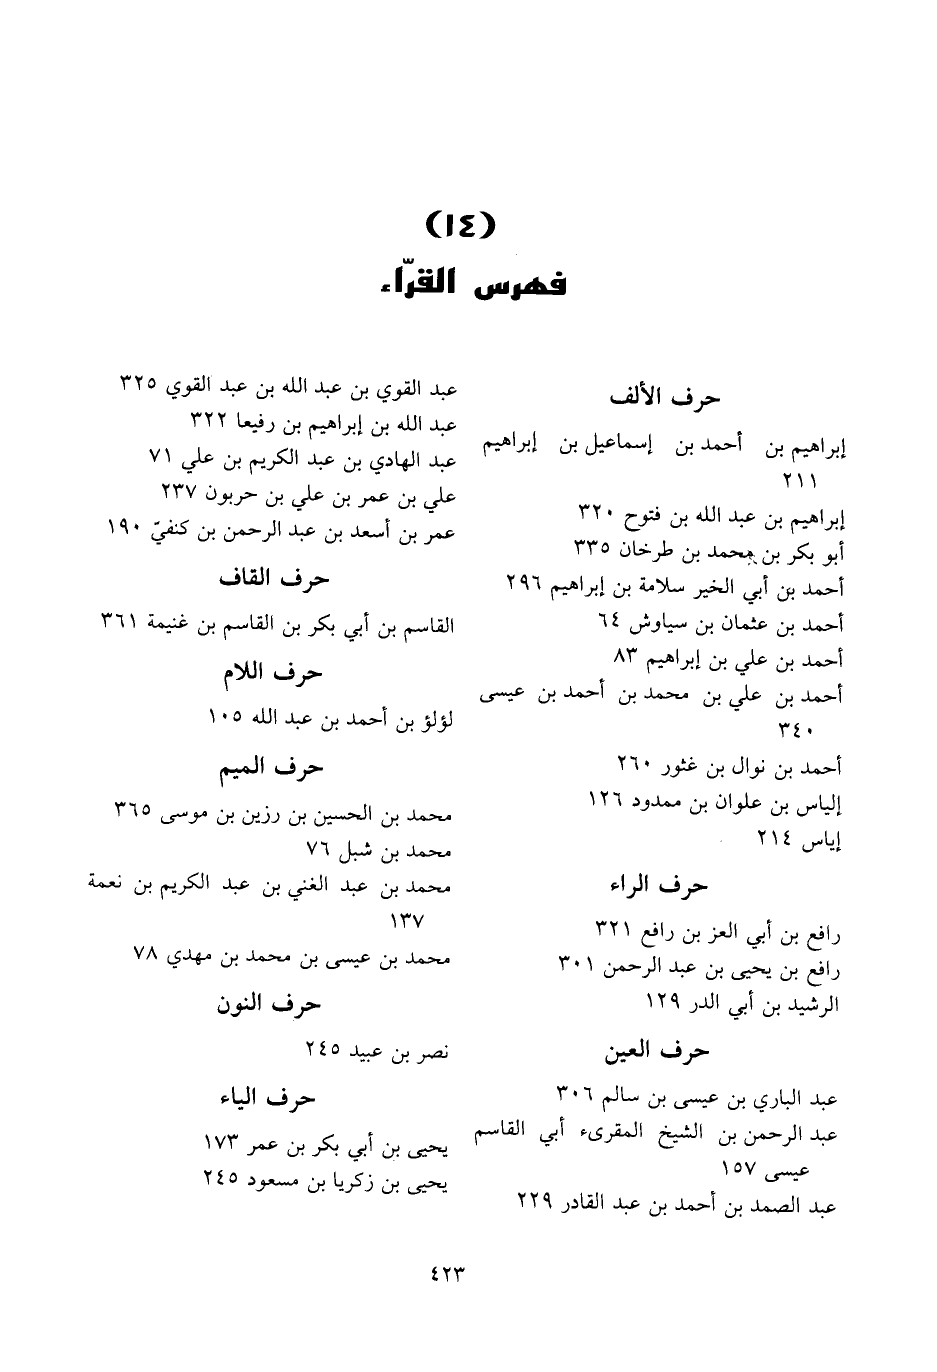 (١٤)
فهرس القرّاء
حرف الألف
إبراهيم بن أحمد بن إسماعيل بن إبراهيم
٢١١
إبراهيم بن عبد الله بن فتوح ٣٢٠
أبو بكر بن محمد بن طرخان ٣٣٥
أحمد بن أبي الخير سلامة بن إبراهيم ٢٩٦
أحمد بن عثمان بن سياوش ٦٤
أحمد بن علي بن إبراهيم ٨٣
أحمد بن علي بن محمد بن أحمد بن عيسى
٣٤٠
أحمد بن نوال بن غثور ٢٦٠
إلياس بن علوان بن ممدود ١٢٦
إياس ٢١٤
حرف الراء
رافع بن أبي العز بن رافع ٣٢١
رافع بن يحيى بن عبد الرحمن ٣٠١
الرشيد بن أبي الدر ١٢٩
حرف العين
عبد الباري بن عيسى بن سالم ٣٠٦
عبد الرحمن بن الشيخ المقرىء أبي القاسم
عيسى ١٥٧
عبد الصمد بن أحمد بن عبد القادر ٢٢٩
عبد القوي بن عبد الله بن عبد القوي ٣٢٥
عبد الله بن إبراهيم بن رفيعا ٣٢٢
عبد الهادي بن عبد الكريم بن علي ٧١
علي بن عمر بن علي بن حربون ٢٣٧
عمر بن أسعد بن عبد الرحمن بن كنفيّ ١٩٠
حرف القاف
القاسم بن أبي بكر بن القاسم بن غنيمة ٣٦١
حرف اللام
لؤلؤ بن أحمد بن عبد الله ١٠٥
حرف الميم
محمد بن الحسين بن رزين بن موسى ٣٦٥
محمد بن شبل ٧٦
محمد بن عبد الغني بن عبد الكريم بن نعمة
١٣٧
محمد بن عيسى بن محمد بن مهدي ٧٨
حرف النون
نصر بن عبيد ٢٤٥
حرف الياء
يحيى بن أبي بكر بن عمر ١٧٣
يحيى بن زكريا بن مسعود ٢٤٥
٤٢٣